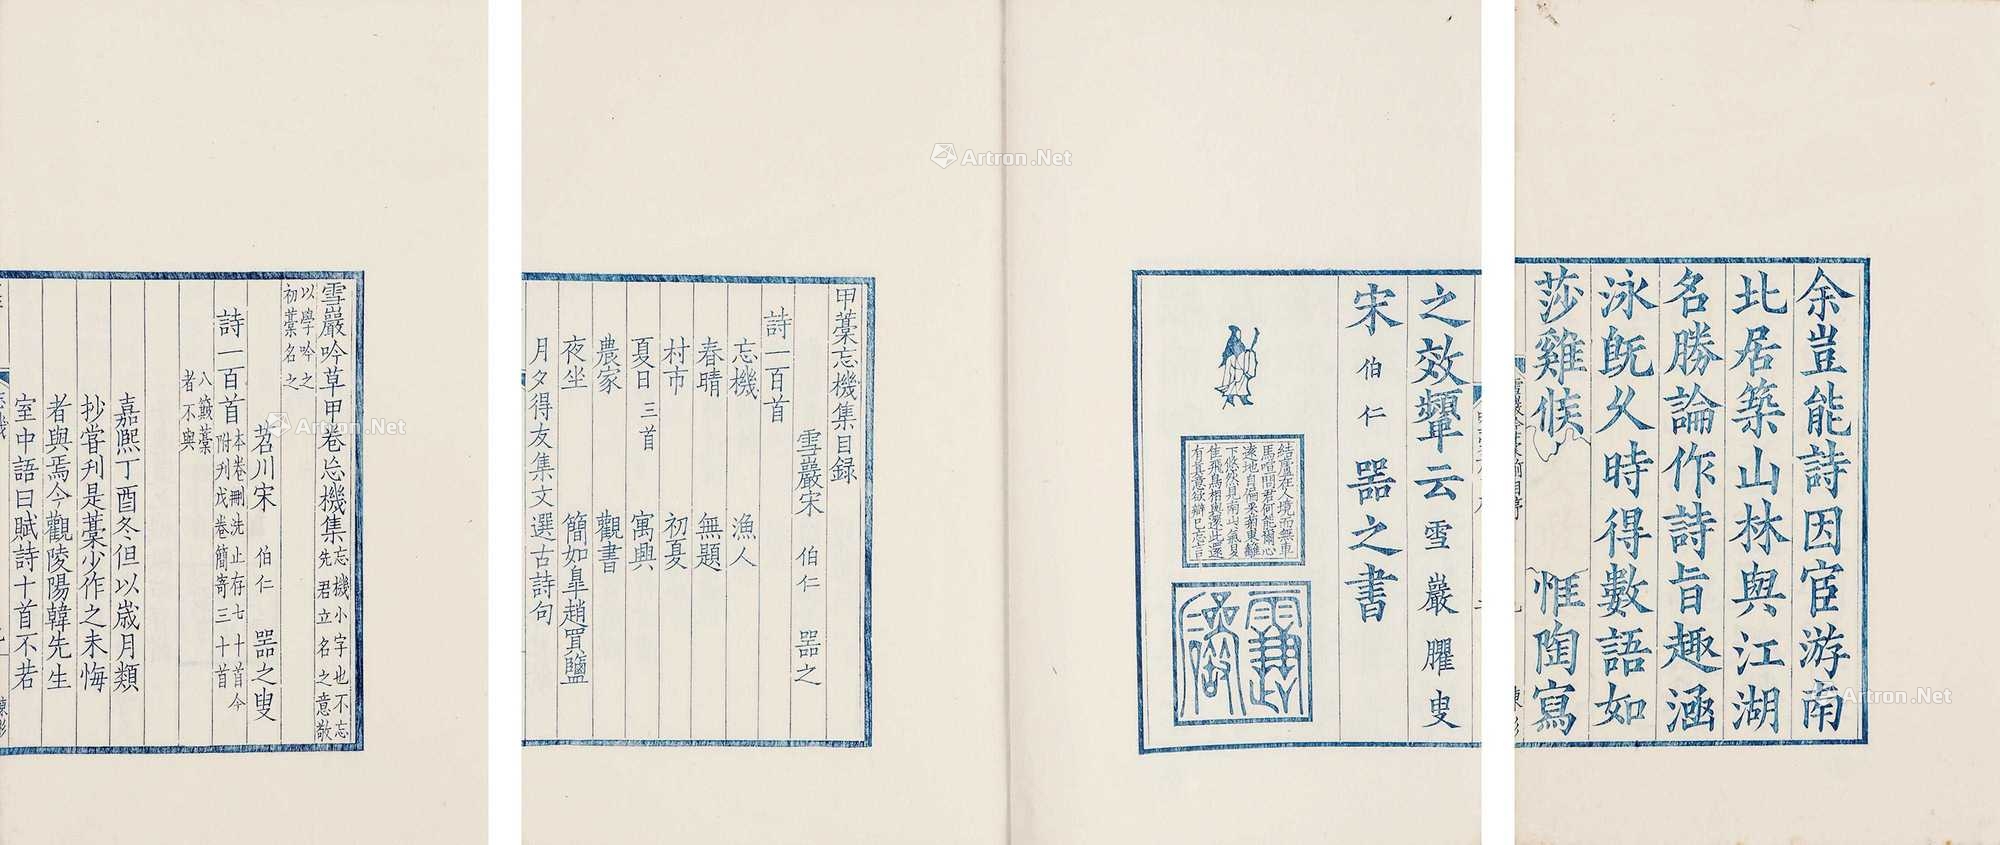 余豈能詩因宦游南
北居築山林與江湖
名勝論作詩旨趣涵
泳旣久時得數語如
莎雞候
惟陶寫
之效顰云雪巖臞叟
宋伯仁器之書
結廬在人境而無車
馬喧問君何能爾心
遠地自偏采菊東籬
下悠然見南山山氣日夕
佳飛鳥相與還此還
有眞意欲辯已忘言
甲藁忘機集目録
雪巖宋伯仁器之
詩一百首
忘機 漁人
春晴 無題
村市 初夏
夏日三首 寓興
農家 觀書
夜坐 簡如皐趙買鹽
月夕得友集文選古詩句
雪巖吟草甲卷忘機集忘機小字也不忘
先君立名之意敬
以學吟之
初藁名之
苕川宋伯仁器之叟
詩一百首本卷刪洗止存七十首今
附刋戊卷簡寄三十首
八籤藁
者不與
嘉熙丁酉冬但以歲月類
抄嘗刋是藁少作之未悔
者與焉今觀陵陽韓先生
室中語曰賦詩十首不若
Artron.Net
Artron.Net
Artron.Net